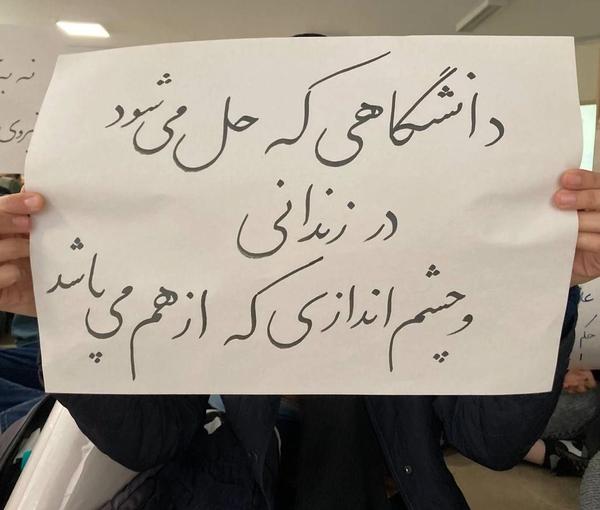 دانشگاهی که حل می‌شود
در زندانی
و چشم اندازی که از هم می‌پاشد
نه به